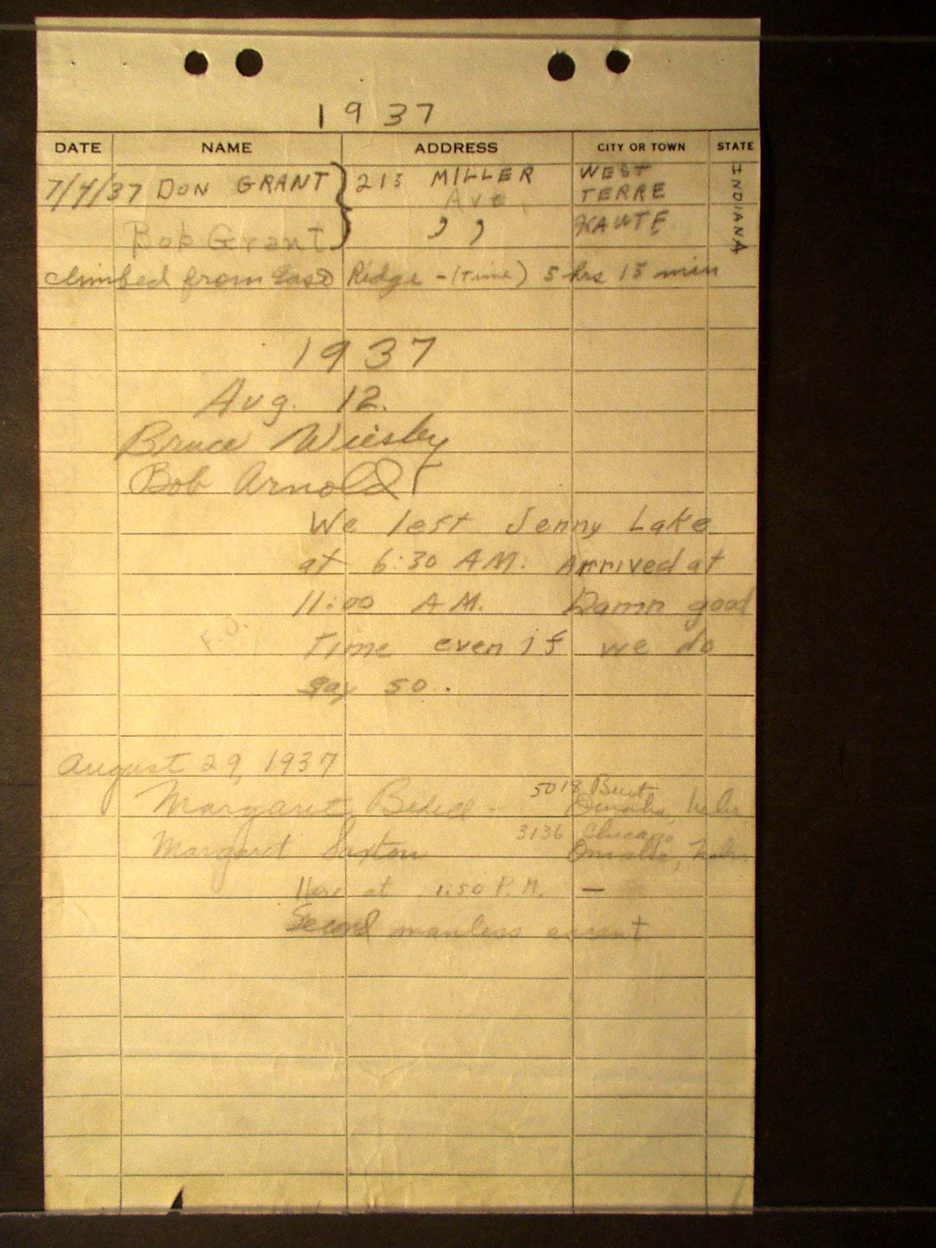 1937
DATE NAME ADDRESS CITY OR TOWN STATE
7/4/37 DON GRANT } 215 MILLER Ave. WEST TERRE HAUTE INDIANA
Bob Grant } " "
climbed from East Ridge - (Time) 5 hrs 15 min
1937
Aug. 12.
Bruce
Bob Arnold
We left Jenny Lake
at 6:30 A.M. Arrived at
11:00 A.M. Damn good
Time even if we do
say so.
August 29, 1937
Margaret 5018 Burt Omaha, Nebr
Margaret 3136 Chicago Omaha, Nebr
Here at 1:50 P.M. —
Second manless ascent